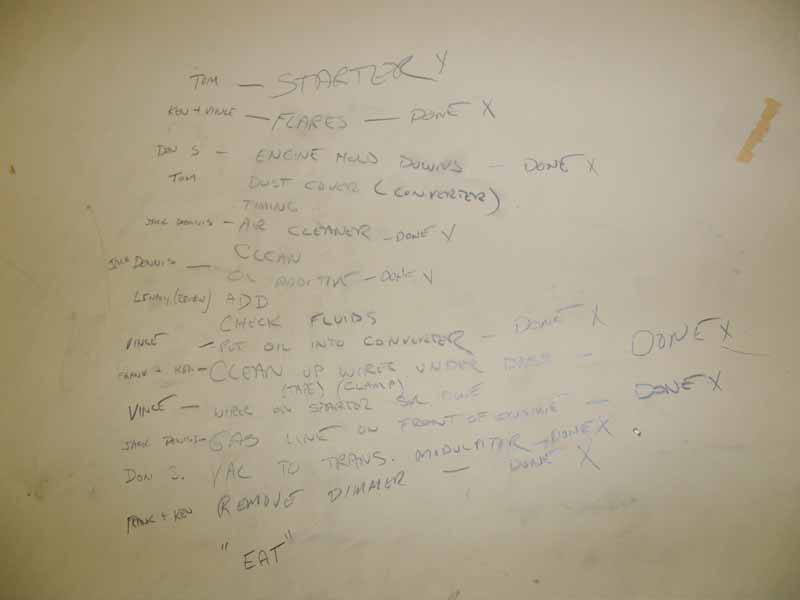 TOM — STARTER X
KEN + VINCE — FLARES — DONE X
DON S — ENGINE HOLD DOWNS — DONE X
TOM DUST COVER (CONVERTER)
TIMING
JACK DENNIS — AIR CLEANER — DONE X
CLEAN
JACK DENNIS — OIL ADDITIVE — DONE X
LENNY ADD
CHECK FLUIDS
VINCE — PUT OIL INTO CONVERTER — DONE X
FRANK + KEN — CLEAN UP WIRES UNDER DASH — DONE X
(TAPE) (CLAMP)
VINCE — WIRES ON STARTER DONE
JACK DENNIS — GAS LINE ON FRONT OF ENGINE — DONE X
DON S. VAC TO TRANS. MODULATOR — DONE X
FRANK + KEN REMOVE DIMMER — DONE X
"EAT"